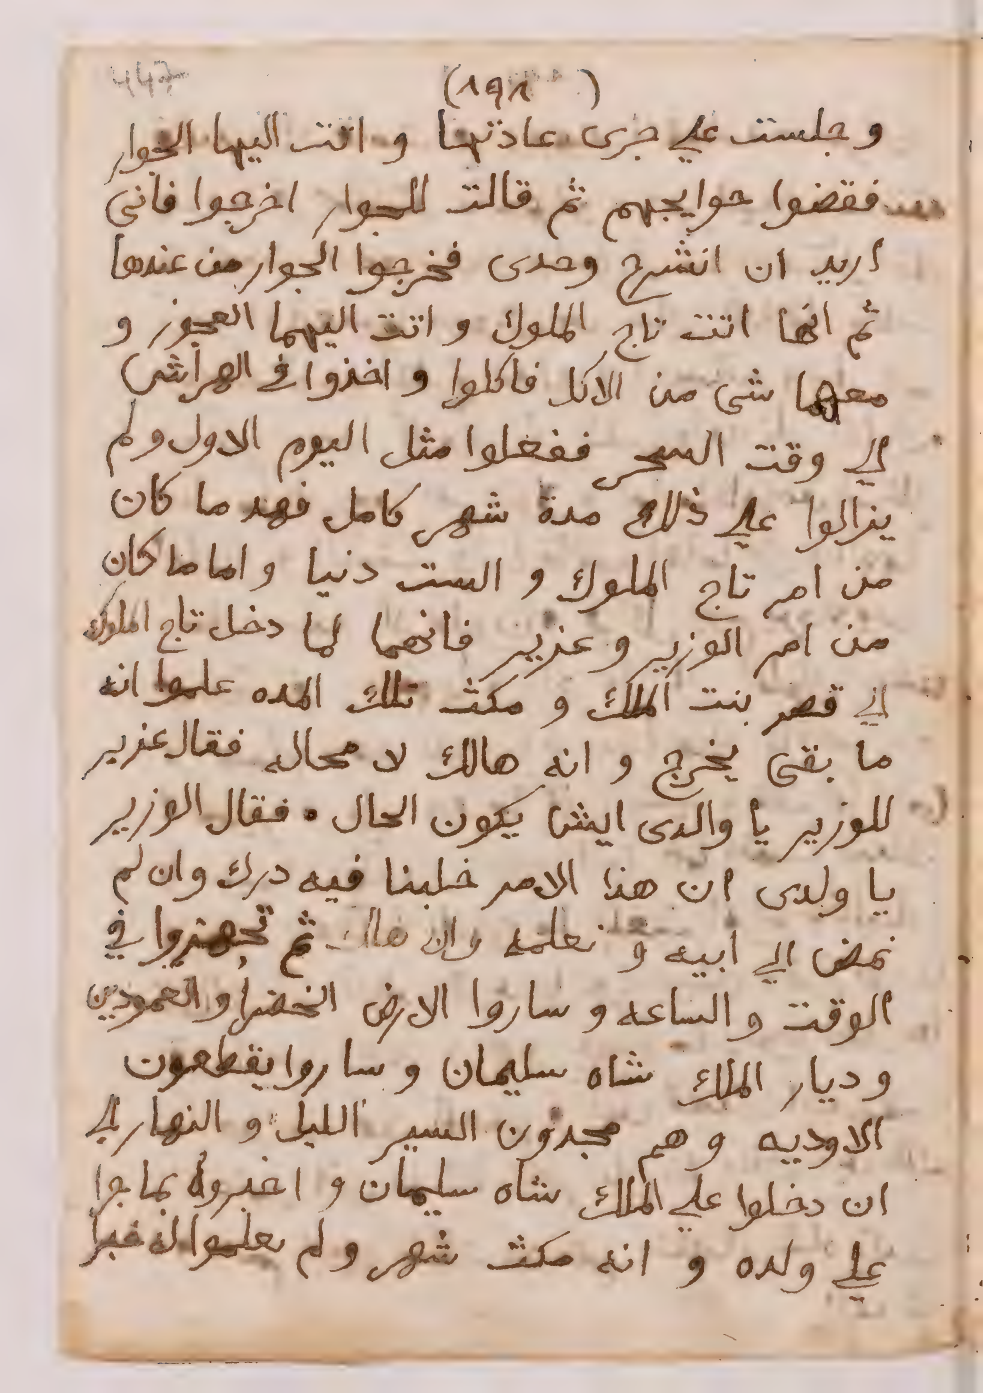 447
(١٩١)
و جلست علي جرى عادتها و اتت اليها الجوار
فقضوا حوايجهم ثم قالت للجوار اخرجوا فانى
اريد ان انشرح وحدى فخرجوا الجوار من عندها
ثم انها اتت تاج الملوك و اتت اليهما العجوز و
معهما شى من الاكل فاكلوا و اخذوا فى الهراش
الي وقت السحر ففعلوا مثل اليوم الاول و لم
يزالوا علي ذلك مدة شهر كامل فهد ما كان
من امر تاج الملوك و الست دنيا و اما ما كان
من امر الوزير و عزيز فانهما لما دخل تاج الملوك
الي قصر بنت الملك و مكث تلك المده علموا انه
ما بقى يخرج و انه هالك لا محاله فقال عزيز
للوزير يا والدى ايش يكون الحال • فقال الوزير
يا ولدى ان هذا الامر خلينا فيه درك وان لم
نمض الي ابيه و نعلمه وان هلك ثم تجهزوا في
الوقت و الساعه و ساروا الارض الخضرا و العمودين
و ديار الملك شاه سليمان و ساروا يقطعون
الاوديه و هم مجدون السير الليل و النهار الي
ان دخلوا علي الملك شاه سليمان و اخبروه بما جرا
علي ولده و انه مكث شهر و لم يعلموا له خبرا